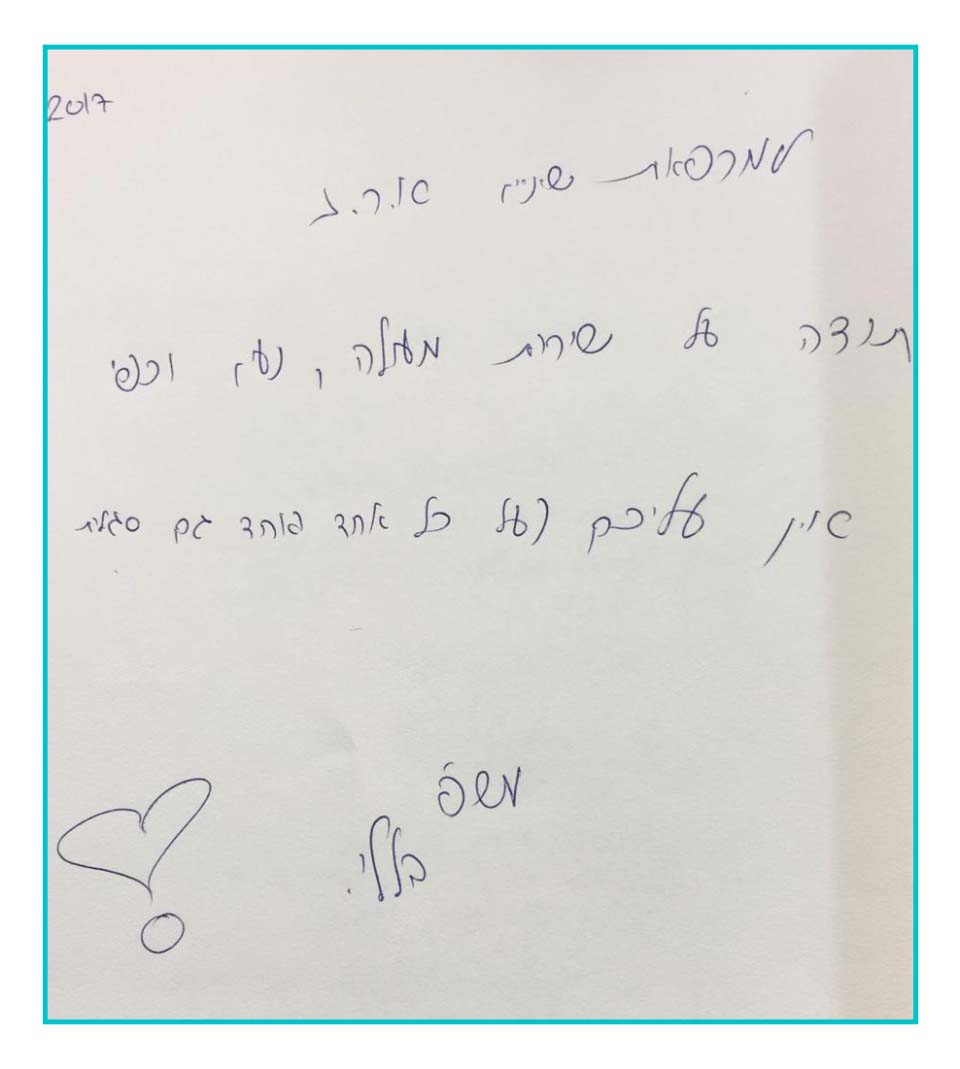 2017
למרפאת שיניים א.ר.ג
תודה על שירות מעולה, נעים וכיפי
אין עליכם (על כל אחד
גם סגלית
משפ'
בללי.